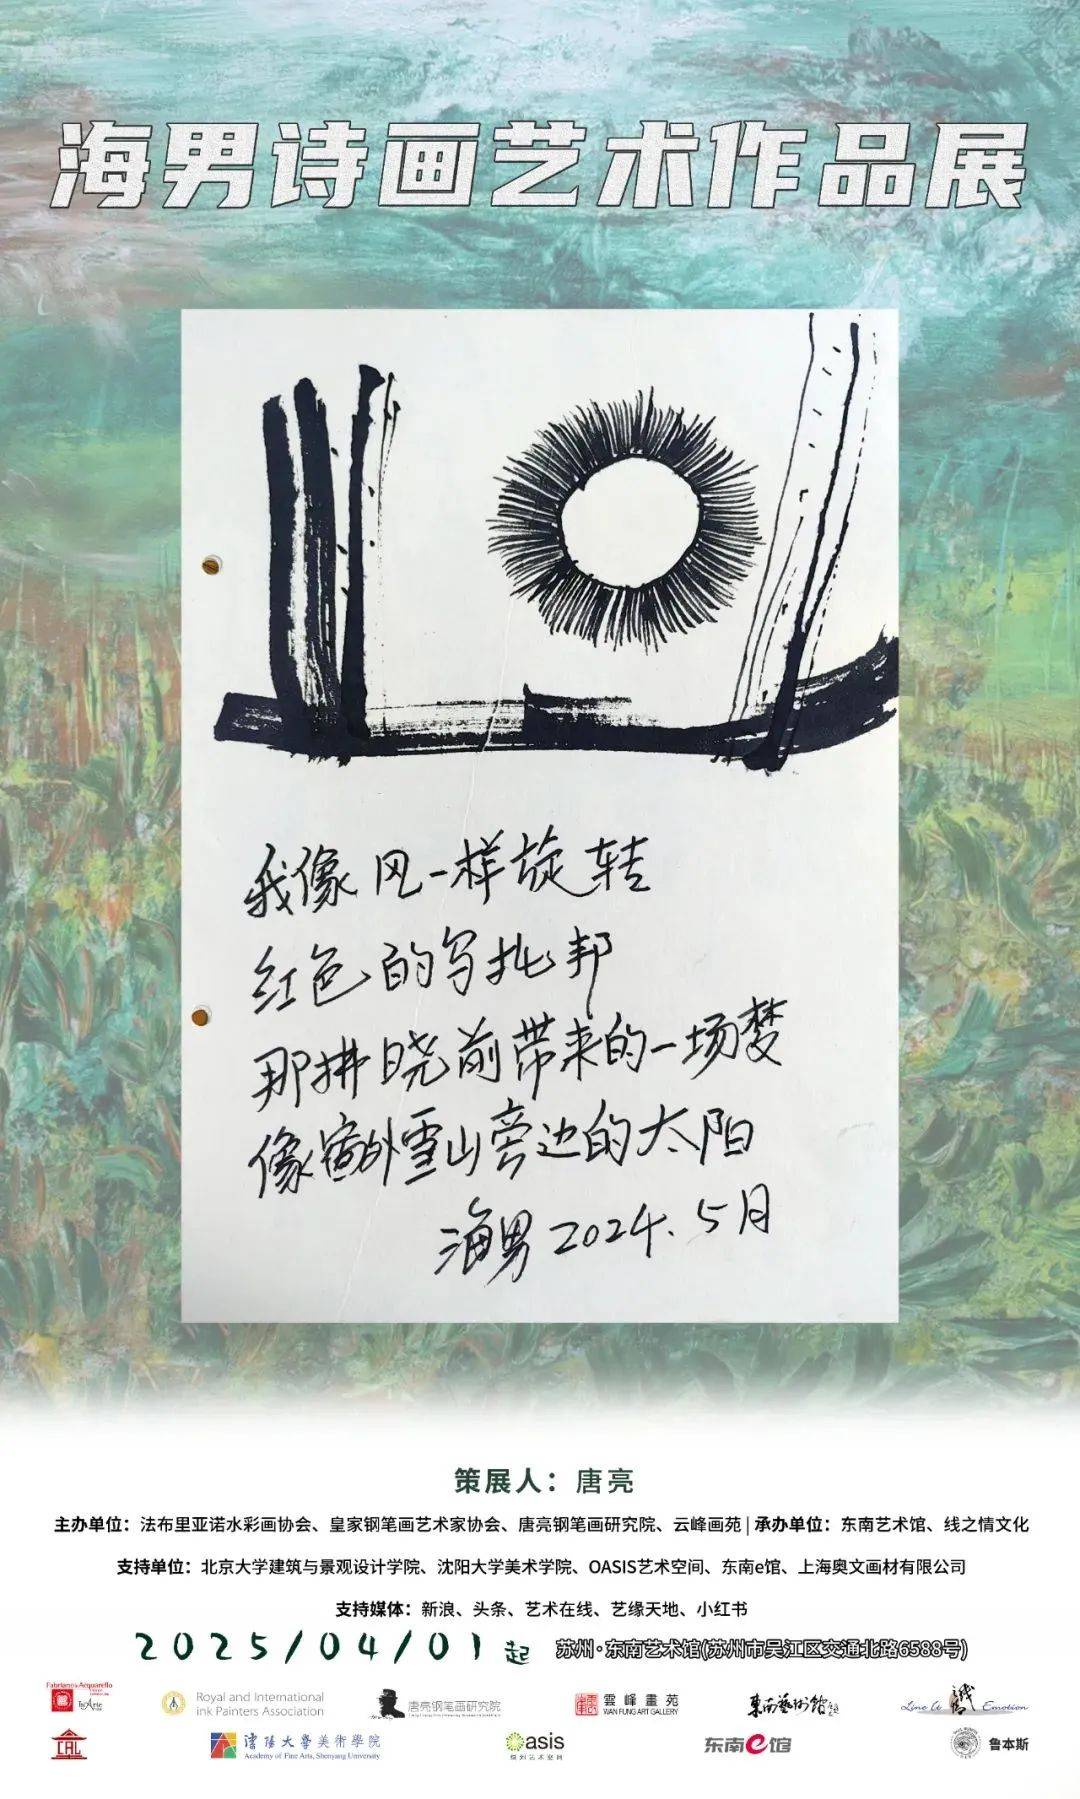 海男诗画艺术作品展
我像风一样旋转
红色的乌托邦
那拂晓前带来的一场梦
像窗外雪山旁边的太阳
海男2024.5月
策展人：唐亮
主办单位：法布里亚诺水彩画协会、皇家钢笔画艺术家协会、唐亮钢笔画研究院、云峰画苑 | 承办单位：东南艺术馆、线之情文化
支持单位：北京大学建筑与景观设计学院、沈阳大学美术学院、OASIS艺术空间、东南e馆、上海奥文画材有限公司
支持媒体：新浪、头条、艺术在线、艺缘天地、小红书
2025/04/01起 苏州·东南艺术馆(苏州市吴江区交通北路6588号)
Fabriano Acquarello
Royal and International
ink Painters Association
唐亮钢笔画研究院
雲峰畫苑
WAN FUNG ART GALLERY
東南藝術館
Line & Emotion
CAL
瀋陽大學美術學院
Academy of Fine Arts, Shenyang University
oasis
东南e馆
鲁本斯